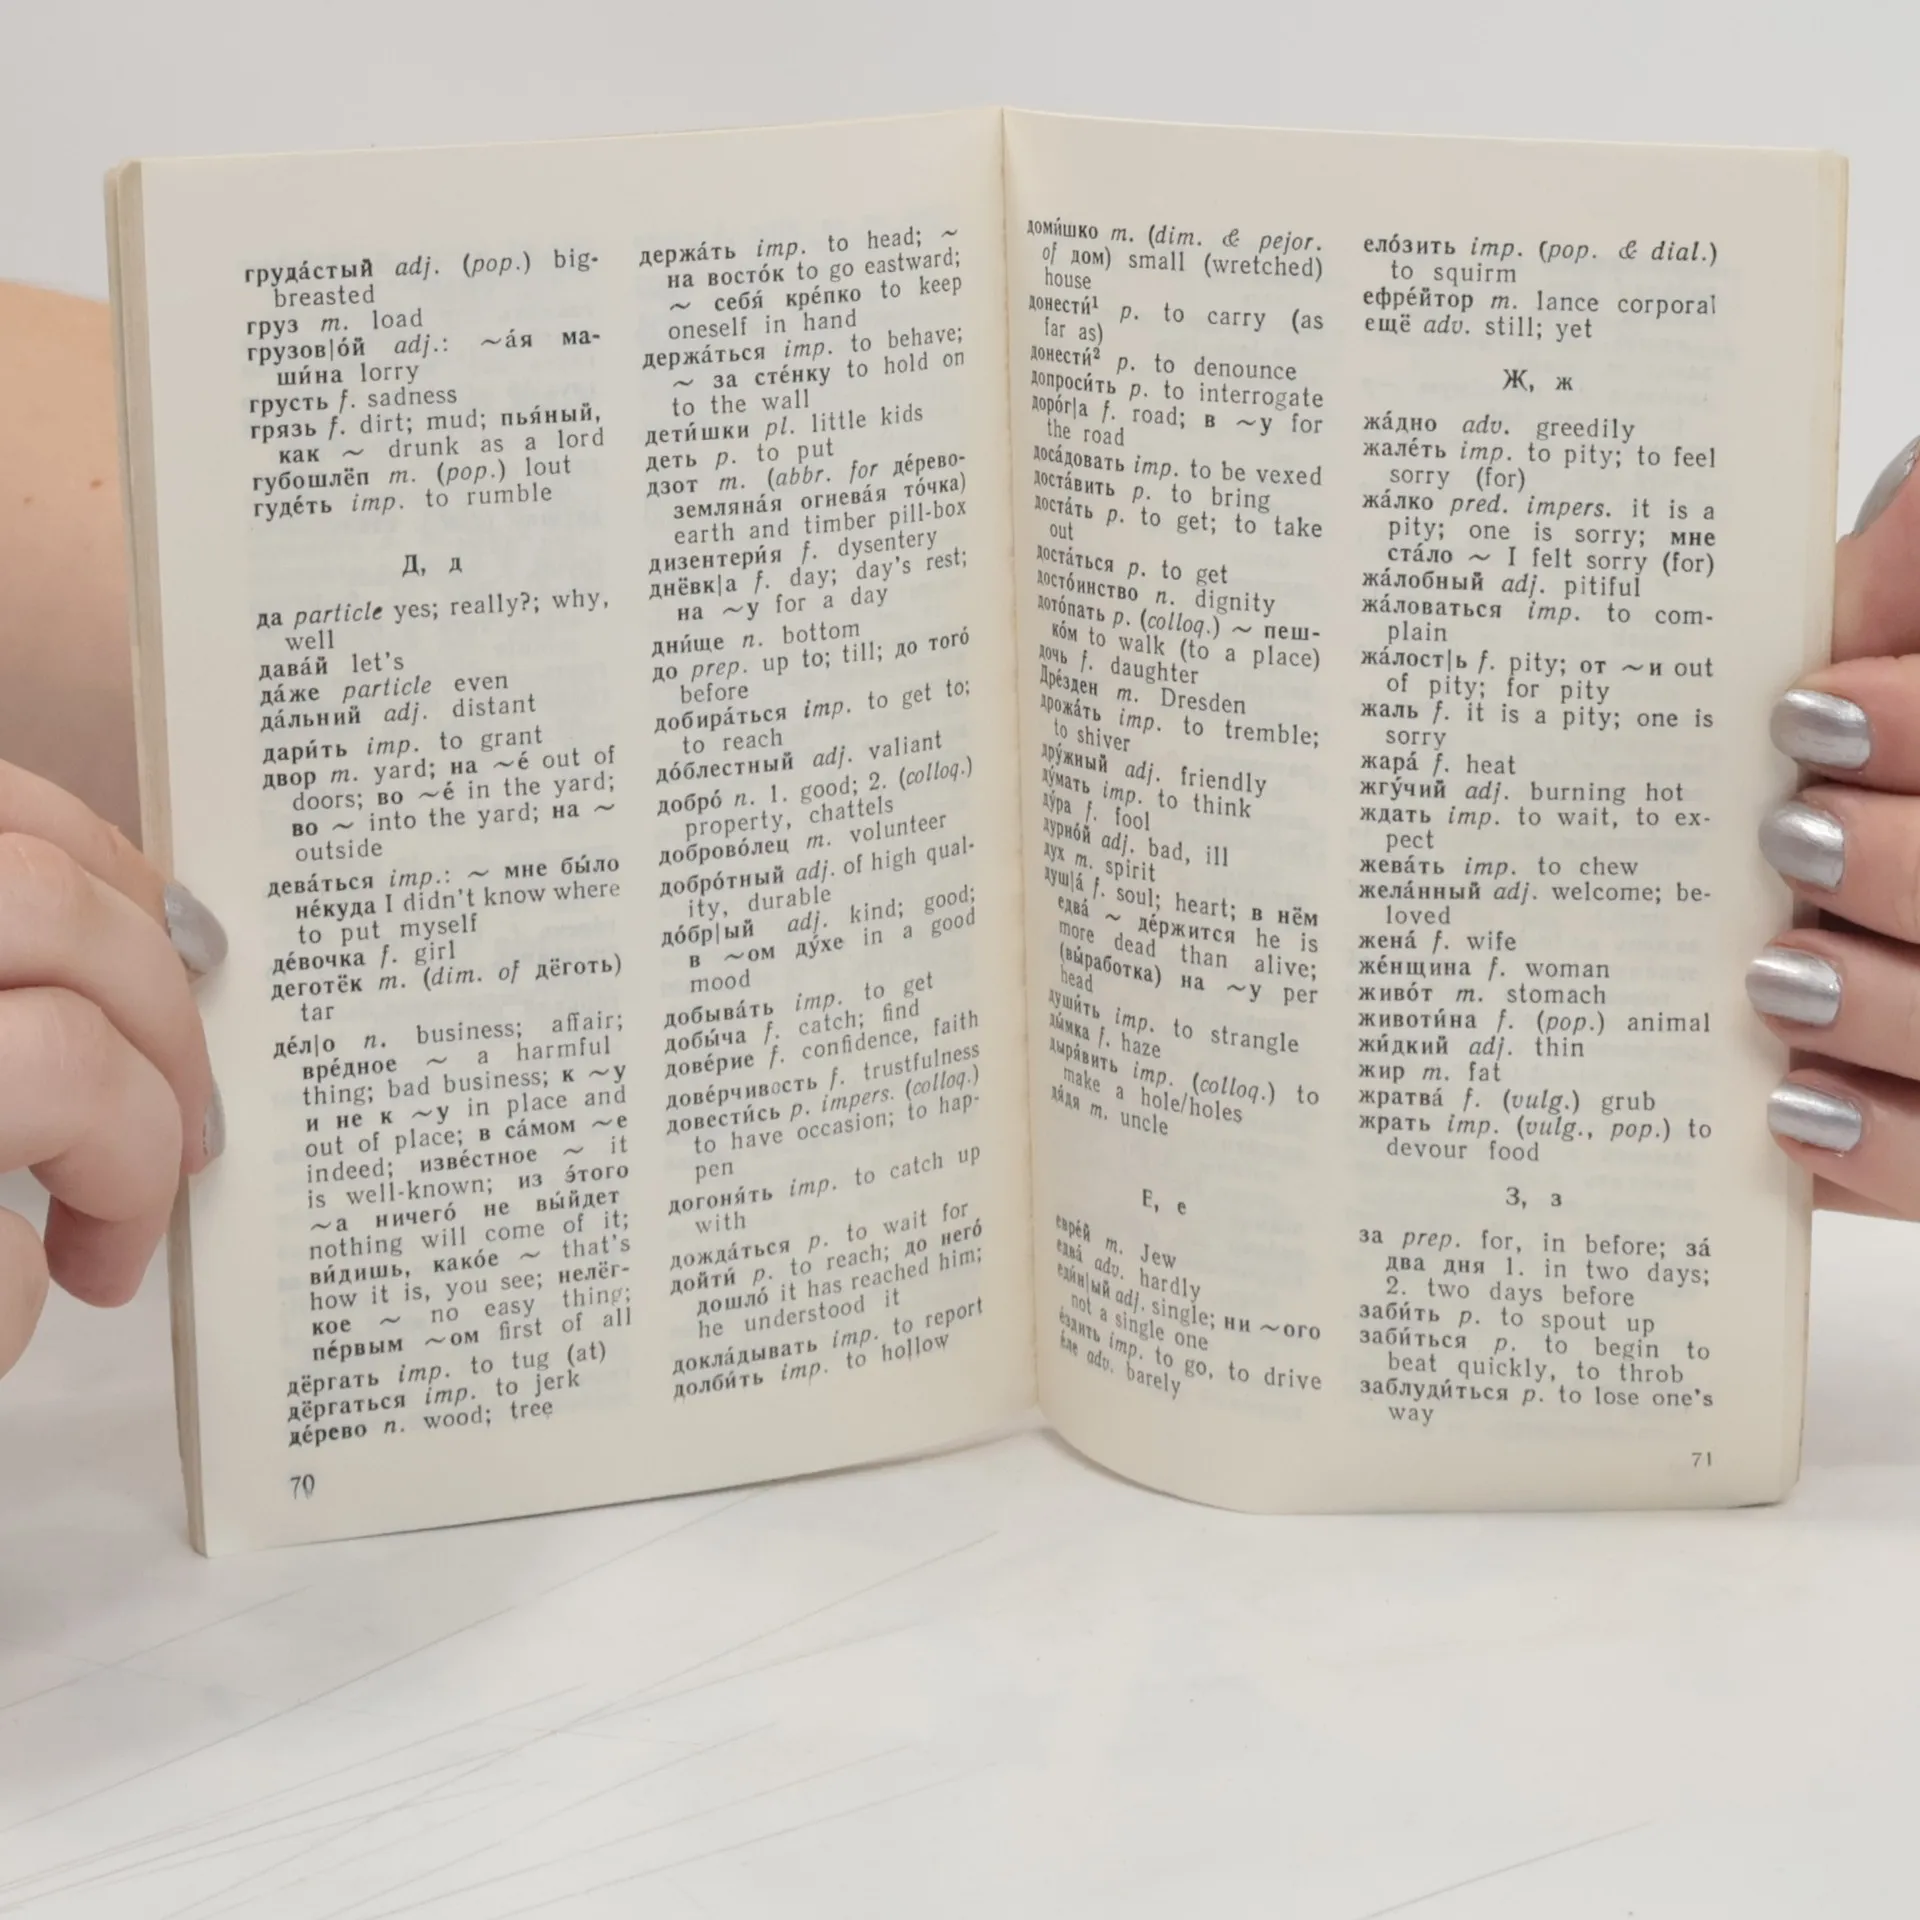 груда́стый adj. (pop.) big-
breasted
груз m. load
грузов|о́й adj.: ~а́я ма-
ши́на lorry
грусть f. sadness
грязь f. dirt; mud; пья́ный,
как ~ drunk as a lord
губошлёп m. (pop.) lout
гуде́ть imp. to rumble
Д, д
да particle yes; really?; why,
well
дава́й let's
да́же particle even
да́льний adj. distant
дари́ть imp. to grant
двор m. yard; на ~е́ out of
doors; во ~е́ in the yard;
во ~ into the yard; на ~
outside
дева́ться imp.: ~ мне бы́ло
не́куда I didn't know where
to put myself
де́вочка f. girl
деготёк m. (dim. of дёготь)
tar
де́л|о n. business; affair;
вре́дное ~ a harmful
thing; bad business; к ~у
и не к ~у in place and
out of place; в са́мом ~е
indeed; изве́стное ~ it
is well-known; из э́того
~а ничего́ не вы́йдет
nothing will come of it;
ви́дишь, како́е ~ that's
how it is, you see; нелёг-
кое ~ no easy thing;
пе́рвым ~ом first of all
дёргать imp. to tug (at)
дёргаться imp. to jerk
де́рево n. wood; tree
70
держа́ть imp. to head; ~
на восто́к to go eastward;
~ себя́ кре́пко to keep
oneself in hand
держа́ться imp. to behave;
~ за сте́нку to hold on
to the wall
дети́шки pl. little kids
деть p. to put
дзот m. (abbr. for де́рево-
земляна́я огнева́я то́чка)
earth and timber pill-box
дизентери́я f. dysentery
днёвк|а f. day; day's rest;
на ~у for a day
дни́ще n. bottom
до prep. up to; till; до того́
before
добира́ться imp. to get to;
to reach
до́блестный adj. valiant
добро́ n. 1. good; 2. (colloq.)
property, chattels
доброво́лец m. volunteer
добро́тный adj. of high qual-
ity, durable
до́бр|ый adj. kind; good;
в ~ом ду́хе in a good
mood
добыва́ть imp. to get
добы́ча f. catch; find
дове́рие f. confidence, faith
дове́рчивость f. trustfulness
довести́сь p. impers. (colloq.)
to have occasion; to hap-
pen
догоня́ть imp. to catch up
with
дожда́ться p. to wait for
дойти́ p. to reach; до него́
дошло́ it has reached him;
he understood it
докла́дывать imp. to report
долби́ть imp. to hollow
доми́шко m. (dim. & pejor.
of дом) small (wretched)
house
донести́¹ p. to carry (as
far as)
донести́² p. to denounce
допроси́ть p. to interrogate
доро́г|а f. road; в ~у for
the road
доса́довать imp. to be vexed
доста́вить p. to bring
доста́ть p. to get; to take
out
доста́ться p. to get
досто́инство n. dignity
дото́пать p. (colloq.) ~ пеш-
ко́м to walk (to a place)
дочь f. daughter
Дре́зден m. Dresden
дрожа́ть imp. to tremble;
to shiver
дру́жный adj. friendly
ду́мать imp. to think
ду́ра f. fool
дурно́й adj. bad, ill
дух m. spirit
душ|а́ f. soul; heart; в нём
едва́ ~ де́ржится he is
more dead than alive;
(вы́работка) на ~у per
head
души́ть imp. to strangle
ды́мка f. haze
дыря́вить imp. (colloq.) to
make a hole/holes
дя́дя m. uncle
Е, е
евре́й m. Jew
едва́ adv. hardly
еди́н|ый adj. single; ни ~ого
not a single one
е́здить imp. to go, to drive
е́ле adv. barely
ело́зить imp. (pop. & dial.)
to squirm
ефре́йтор m. lance corporal
ещё adv. still; yet
Ж, ж
жа́дно adv. greedily
жале́ть imp. to pity; to feel
sorry (for)
жа́лко pred. impers. it is a
pity; one is sorry; мне
ста́ло ~ I felt sorry (for)
жа́лобный adj. pitiful
жа́ловаться imp. to com-
plain
жа́лост|ь f. pity; от ~и out
of pity; for pity
жаль f. it is a pity; one is
sorry
жара́ f. heat
жгу́чий adj. burning hot
ждать imp. to wait, to ex-
pect
жева́ть imp. to chew
жела́нный adj. welcome; be-
loved
жена́ f. wife
же́нщина f. woman
живо́т m. stomach
животи́на f. (pop.) animal
жи́дкий adj. thin
жир m. fat
жратва́ f. (vulg.) grub
жрать imp. (vulg., pop.) to
devour food
З, з
за prep. for, in before; за́
два дня 1. in two days;
2. two days before
заби́ть p. to spout up
заби́ться p. to begin to
beat quickly, to throb
заблуди́ться p. to lose one's
way
71